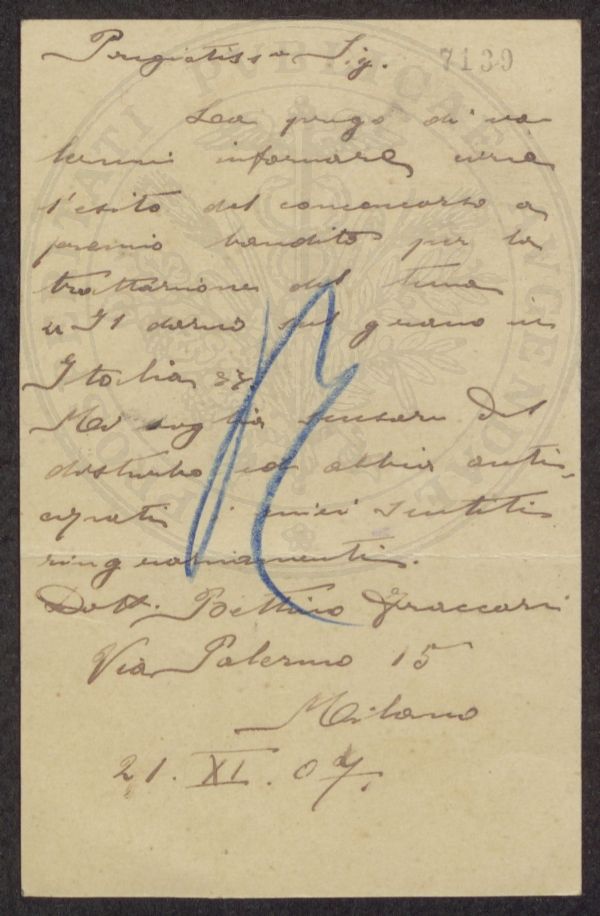 Pregiatisso Sig. 7139
La prego di vo
lermi informare circa
l'esito del concorso a
premio bandito per la
trattazione del tema
"Il dazio sul grano in
Italia".
Mi voglia scusare del
disturbo ed abbia anti-
cipati i miei sentiti
ringraziamenti.
Dott. Bettino
Via Palermo 15
Milano
21. XI. 07.
SOCIETATI PUBLICAE PROVEHENDAE